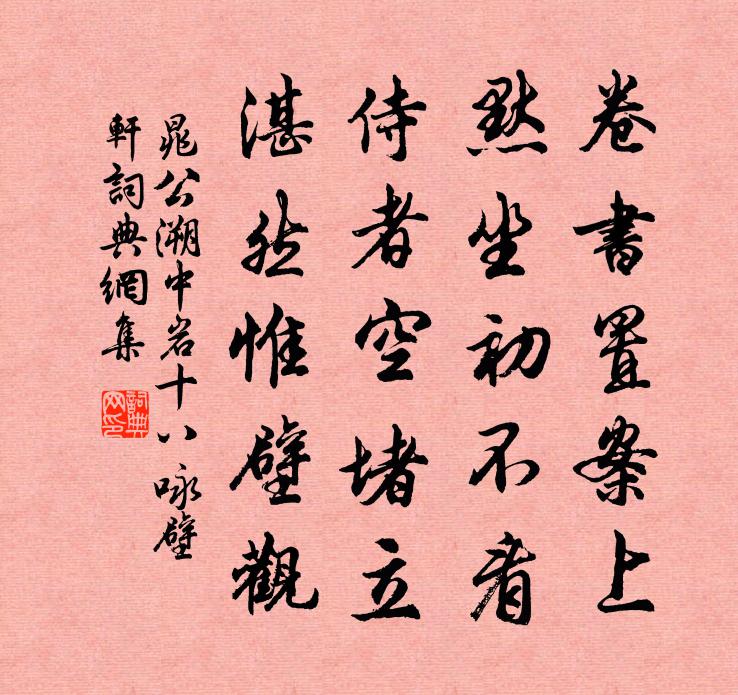 卷書置案上
默坐初不看
侍者空堵立
湛然惟壁觀
晁公溯中岩十八咏壁
軒詞典網集
詞典網印